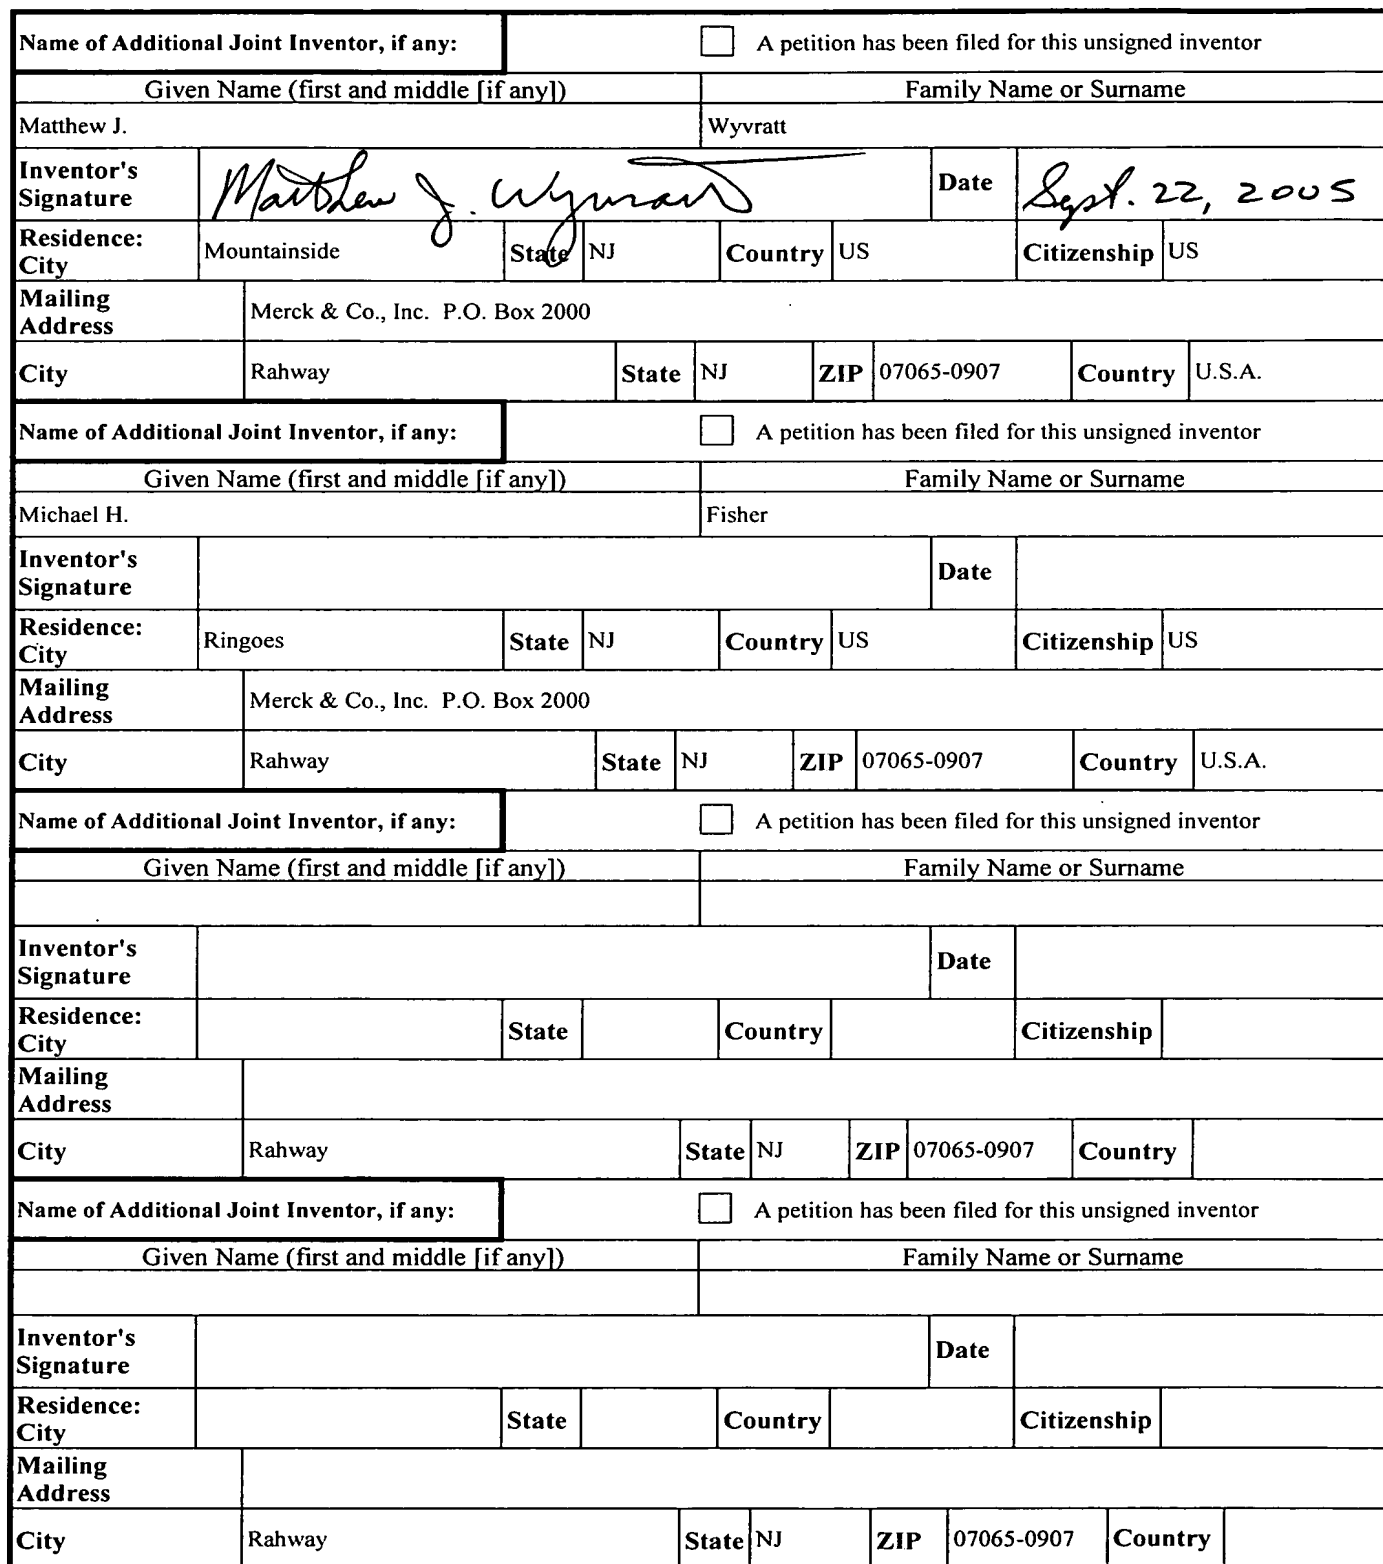 Name of Additional Joint Inventor, if any: A petition has been filed for this unsigned inventor
Given Name (first and middle [if any]) Family Name or Surname
Matthew J. Wyvratt
Inventor's Signature Matthew J. Wyvratt Date Sept. 22, 2005
Residence: City Mountainside State NJ Country US Citizenship US
Mailing Address Merck & Co., Inc. P.O. Box 2000
City Rahway State NJ ZIP 07065-0907 Country U.S.A.
Name of Additional Joint Inventor, if any: A petition has been filed for this unsigned inventor
Given Name (first and middle [if any]) Family Name or Surname
Michael H. Fisher
Inventor's Signature Date
Residence: City Ringoes State NJ Country US Citizenship US
Mailing Address Merck & Co., Inc. P.O. Box 2000
City Rahway State NJ ZIP 07065-0907 Country U.S.A.
Name of Additional Joint Inventor, if any: A petition has been filed for this unsigned inventor
Given Name (first and middle [if any]) Family Name or Surname
Inventor's Signature Date
Residence: City State Country Citizenship
Mailing Address
City Rahway State NJ ZIP 07065-0907 Country
Name of Additional Joint Inventor, if any: A petition has been filed for this unsigned inventor
Given Name (first and middle [if any]) Family Name or Surname
Inventor's Signature Date
Residence: City State Country Citizenship
Mailing Address
City Rahway State NJ ZIP 07065-0907 Country